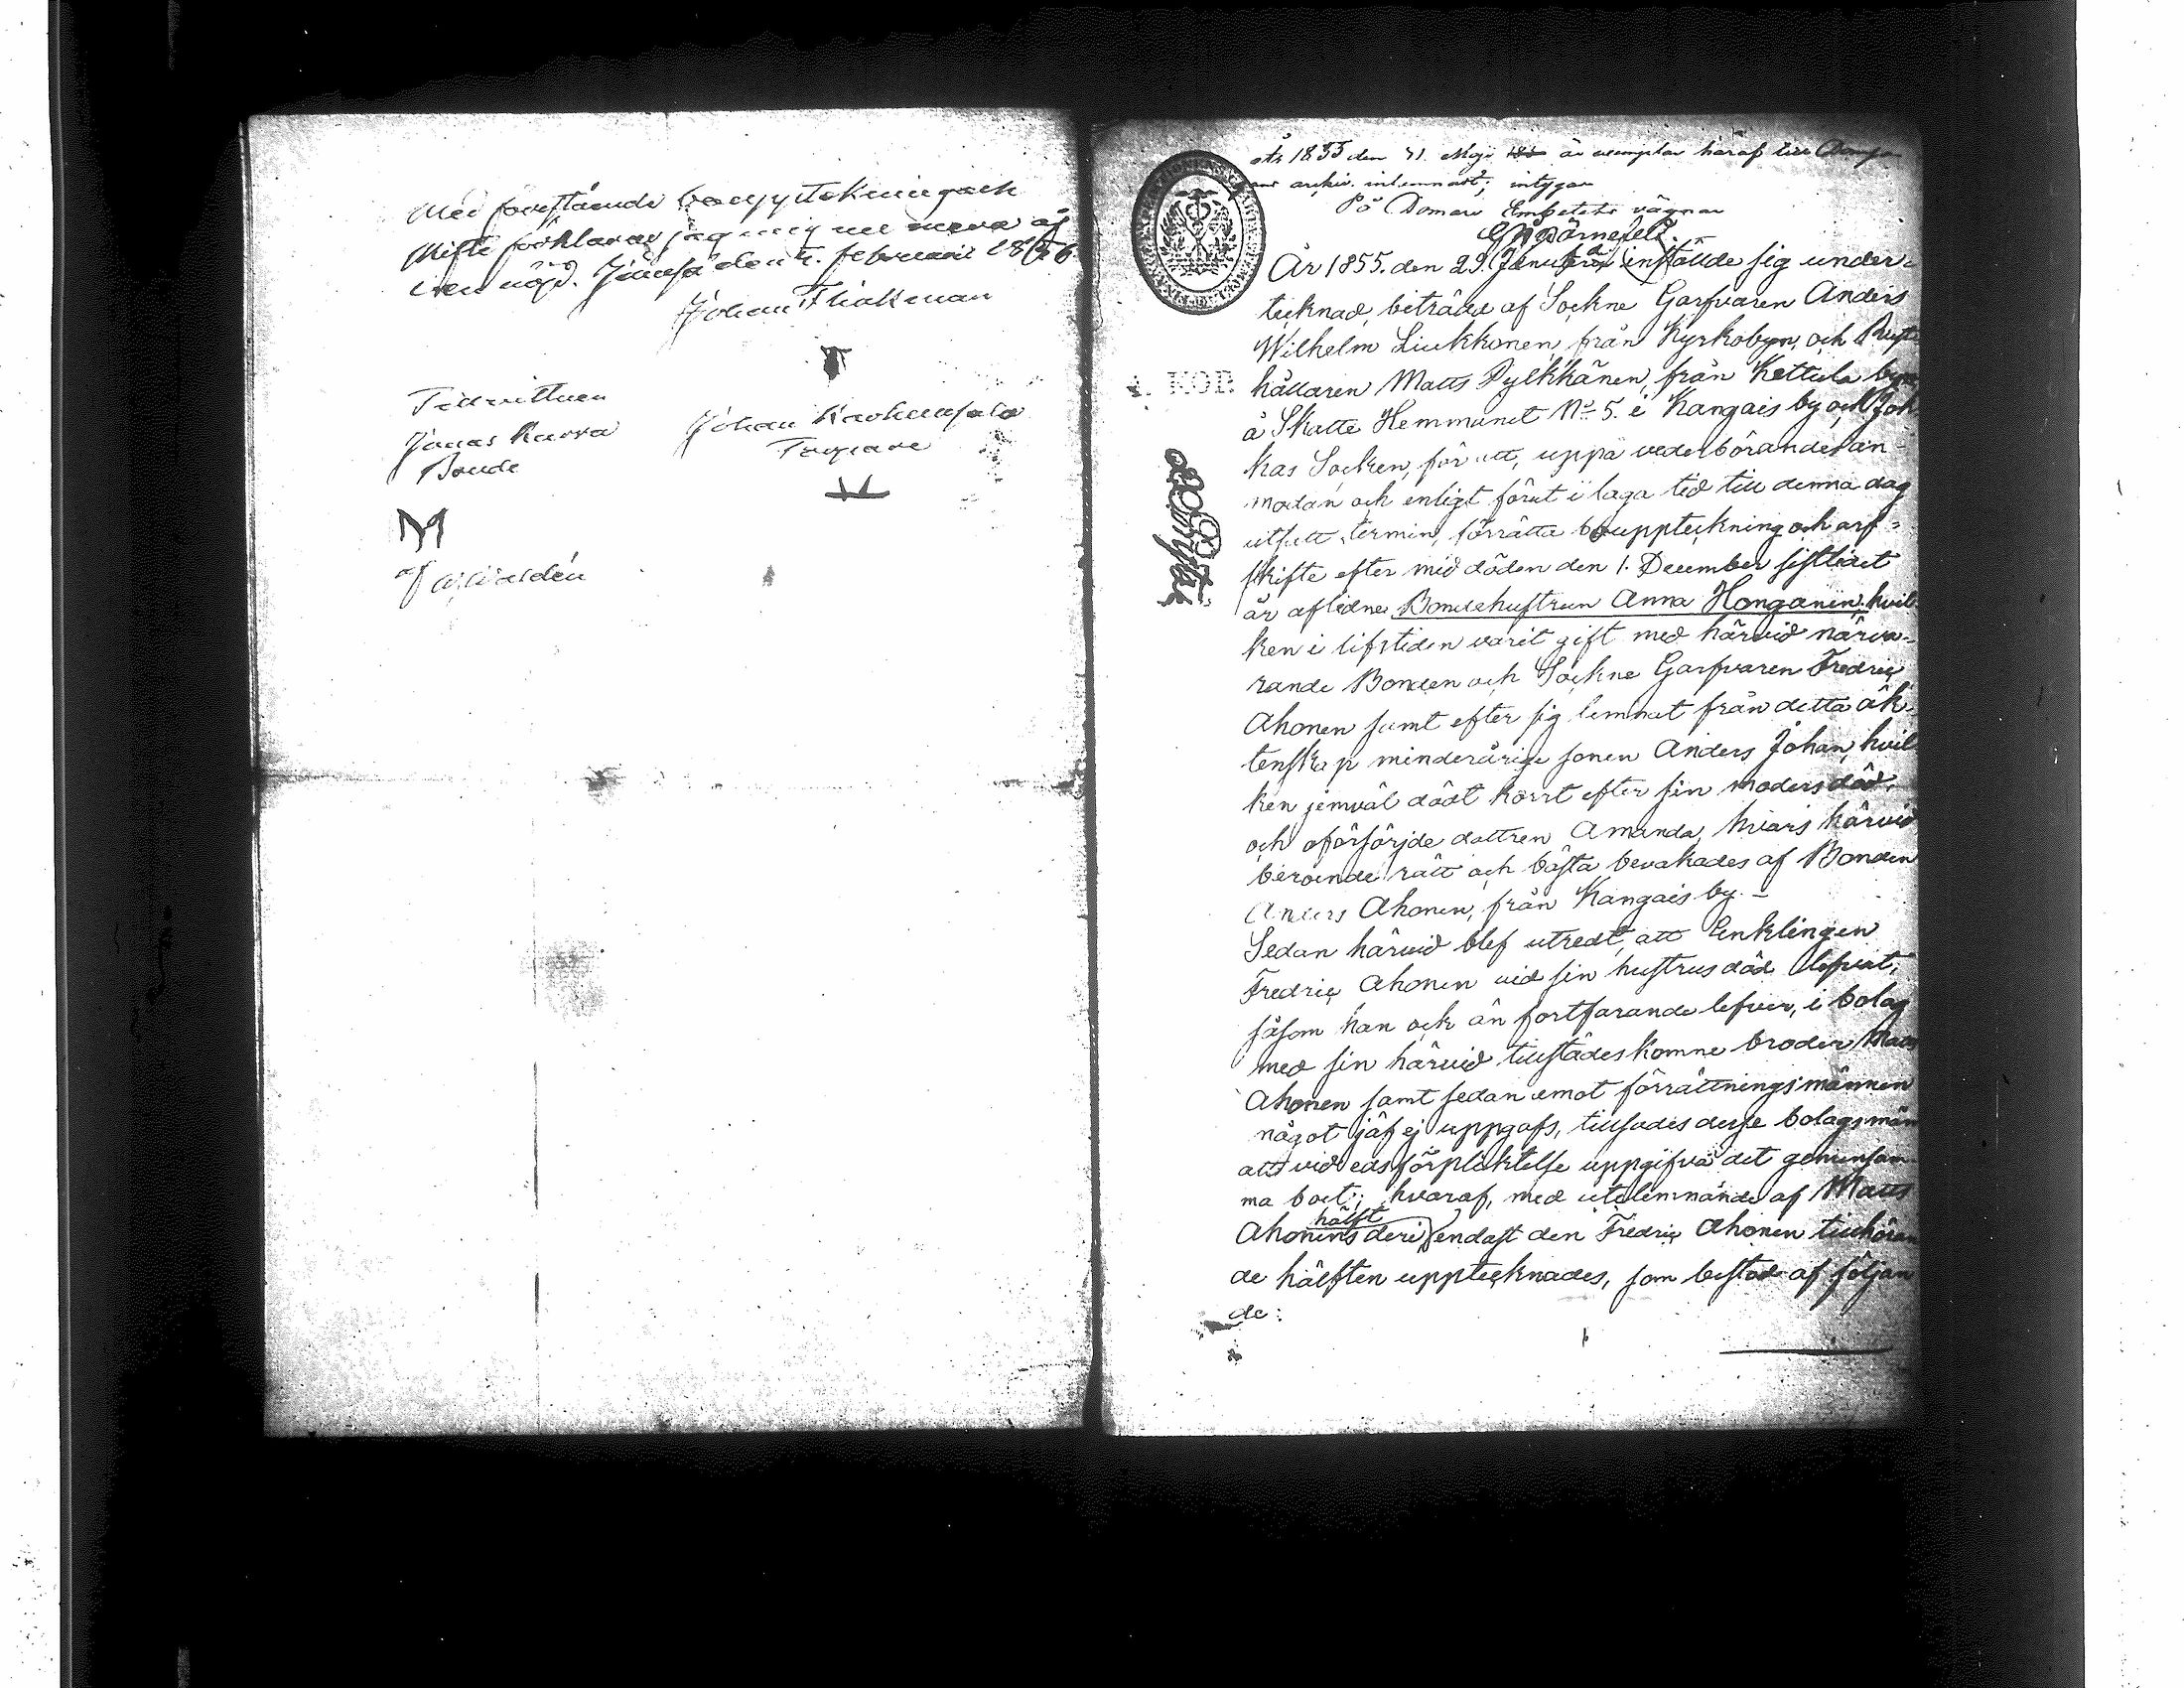 Med förestående bouppteckning och
skifte förklarar jag mig
nöjd. Jämsä den 4. februarii 1856
Johan Thakman
Till vittnen
Jonas Karra
Bonde
Johan
Torpare
af Walldén
den 31. Maji är exemplar häraf till
arkiv inlemnadt; intygar
På Domare Embetets vägnar
År 1855. den 29. Januarii inställde sig under-
tecknad, biträdd af Sockne Garfvaren Anders
Wilhelm Liukkonen, från Kyrkobyn, och Rust-
hållaren Matts Pylkkänen, från Kettula by
å Skatte Hemmanet No 5. i Kangais by och Jok-
kas Socken, för att, uppå vederbörandes an-
modan och enligt förut i laga tid till denna dag
utsatt termin, förrätta bouppteckning och arf-
skifte efter med döden den 1. December sistledet
år aflidne Bondehustrun Anna Honganen, hvil-
ken i lifstiden varit gift med härvid närva-
rande Bonden och Sockne Garfvaren Fredric
Ahonen samt efter sig lemnat från detta äk-
tenskap minderårige sonen Anders Johan, hvil-
ken jemväl dödt kort efter sin moders död,
och oförsörjde dottren Amanda, hvars härvid
beroende rätt och bästa bevakades af Bonden
Anders Ahonen, från Kangais by. –
Sedan härvid blef utredt, att Enklingen
Fredric Ahonen vid sin hustrus död lefvat,
såsom han och än fortfarande lefver, i bolag
med sin härvid tillstädeskomne broder Matts
Ahonen samt sedan emot förrättningsmännen
något jäf ej uppgafs, tillsades desse bolagsmän
att vid edsförpliktelse uppgifva det gemensam-
ma boet; hvaraf, med utelemnande af Matts
Ahonens hälft deri, endast den Fredric Ahonen tillhöran
de hälften upptecknades, som bestod af följan
de: